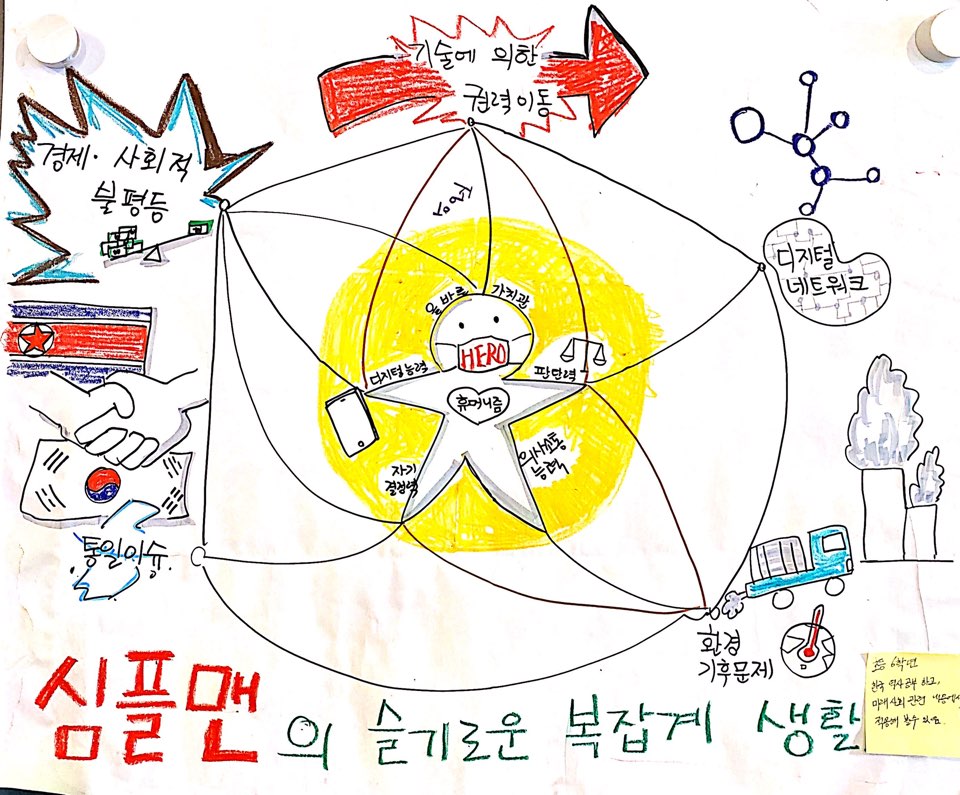 기술에 의한
권력이동
경제·사회적
불평등
디지털
네트워크
올바른 가치관
HERO
디지털능력
판단력
휴머니즘
자기
결정력
의사소통
능력
통일이슈.
환경
기후문제
심플맨의 슬기로운 복잡계 생활
초등 6학년
한국 역사공부 하고,
미래사회 관련
적용해 볼수 있음.